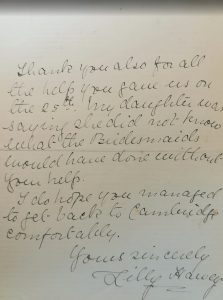 Thank you also for all
the help you gave us on
the 25th. My daughter was
saying she did not know
what the Bridesmaids
would have done without
your help.
I do hope you managed
to get back to Cambridge
comfortably.
Yours sincerely
Lilly